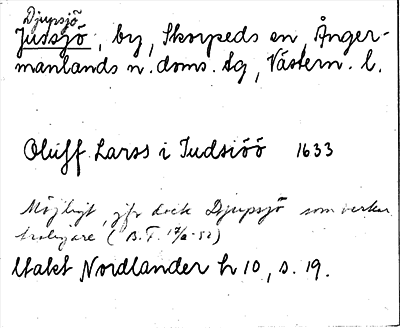 Djupsjö
Jussjö, by, Skorpeds sn, Ånger-
manlands n. doms. sg, Västern. l.
Oluff Larss i Judsiöö 1633
Möjligt, jfr dock Djupsjö som verkar
troligare (B.F. 17/2-52)
Utakt Nordlander h 10, s. 19.